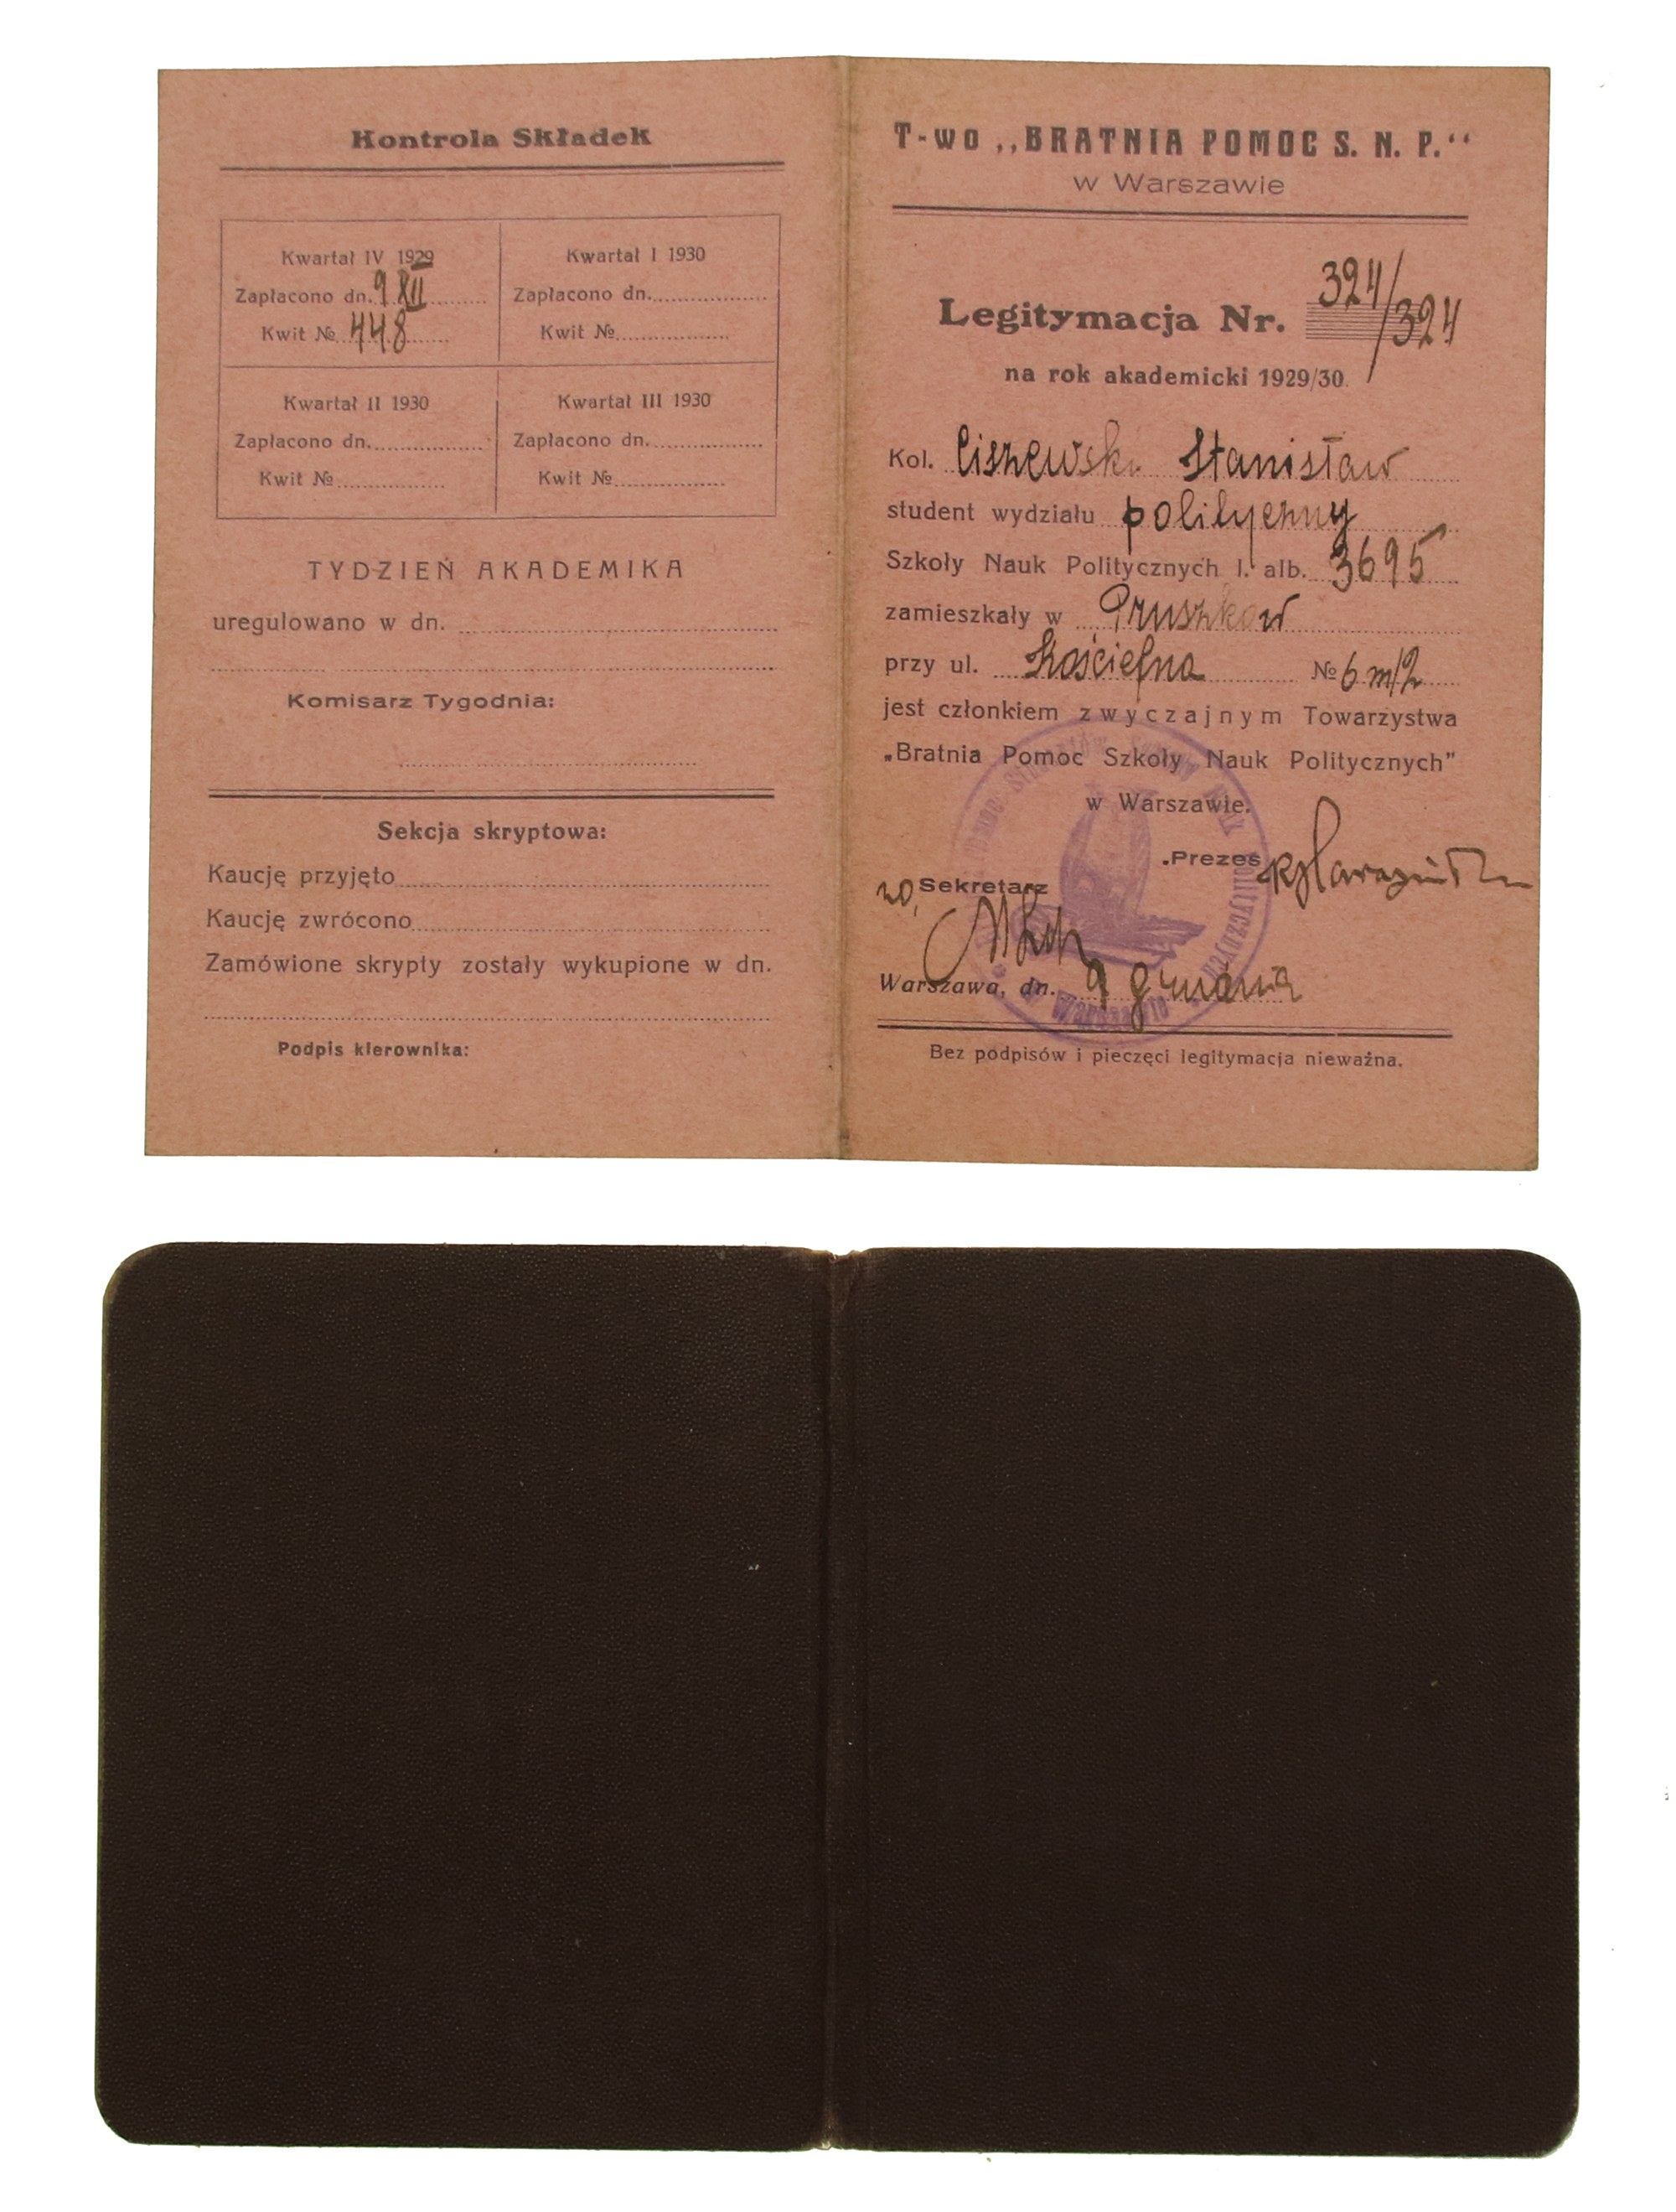 Kontrola Składek
Kwartał IV 1929
Zapłacono dn. 9 XII
Kwit № 448
Kwartał I 1930
Zapłacono dn.
Kwit №
Kwartał II 1930
Zapłacono dn.
Kwit №
Kwartał III 1930
Zapłacono dn.
Kwit №
TYDZIEŃ AKADEMIKA
uregulowano w dn.
Komisarz Tygodnia:
Sekcja skryptowa:
Kaucję przyjęto
Kaucję zwrócono
Zamówione skrypty zostały wykupione w dn.
Podpis kierownika:
T-wo „BRATNIA POMOC S. N. P.“
w Warszawie
Legitymacja Nr. 324/324
na rok akademicki 1929/30.
Kol. Ciszewski Stanisław
student wydziału polityczny
Szkoły Nauk Politycznych l. alb. 3695
zamieszkały w Pruszków
przy ul. Kościelna № 6 m/2
jest członkiem zwyczajnym Towarzystwa
„Bratnia Pomoc Szkoły Nauk Politycznych”
w Warszawie.
Prezes
Sekretarz
Warszawa, dn. 9 grudnia
Bez podpisów i pieczęci legitymacja nieważna.